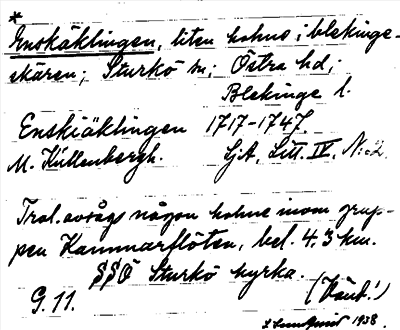 *
Enskäklingen, liten holme i blekinge-
skären; Sturkö sn; Östra hd;
Blekinge l.
Enskiäklingen 1717-1747
M. Küllenbergh. GjA, Litt. IV, N:
Trol. avsågs någon holme inom grup-
pen Kammarflöten, bel. 4.3 km.
SSÖ Sturkö kyrka.
G. 11.
1938.